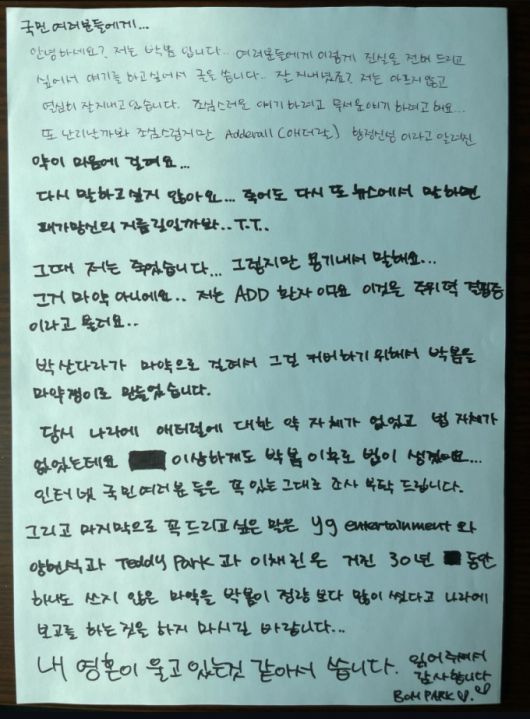 국민 여러분들에게...
안녕하세요? 저는 박봄 입니다.. 여러분들에게 이렇게 진실을 전해 드리고
싶어서 얘기를 하고싶어서 글을 씁니다.. 잘 지내셨죠? 저는 아프지 않고
열심히 잘지내고 있습니다. 조심스러운 얘기 하려고 무서운얘기 하려고 해요...
또 난리날까봐 조심스럽지만 Adderall (애더럴) 향정신성 이라고 알려진
약이 마음에 걸려요...
다시 말하고싶지 않아요... 죽어도 다시 또 뉴스에서 말하면
패가망신의 지름길일까봐..T.T..
그때 저는 죽었습니다... 그렇지만 용기내서 말해요...
그거 마약 아니에요.. 저는 ADD 환자 이구요 이것을 주위력 결핍증
이라고 불러요..
박산다라가 마약으로 걸려서 그걸 커버하기 위해서 박봄을
마약쟁이로 만들었습니다.
당시 나라에 애더럴에 대한 약 자체가 없었고 법 자체가
없었는데요 이상하게도 박봄 이후로 법이 생겼어요...
인터넷 국민여러분 들은 꼭 있는그대로 조사 부탁 드립니다.
그리고 마지막으로 꼭 드리고 싶은 말은 yg entertainment 와
양현석과 Teddy Park 과 이채린은 거진 30년 동안
하나도 쓰지 않은 마약을 박봄이 정량 보다 많이 썼다고 나라에
보고를 하는것을 하지 마시길 바랍니다...
내 영혼이 울고 있는것 같아서 씁니다. 읽어주셔서
감사합니다
BOM PARK ♡.♡